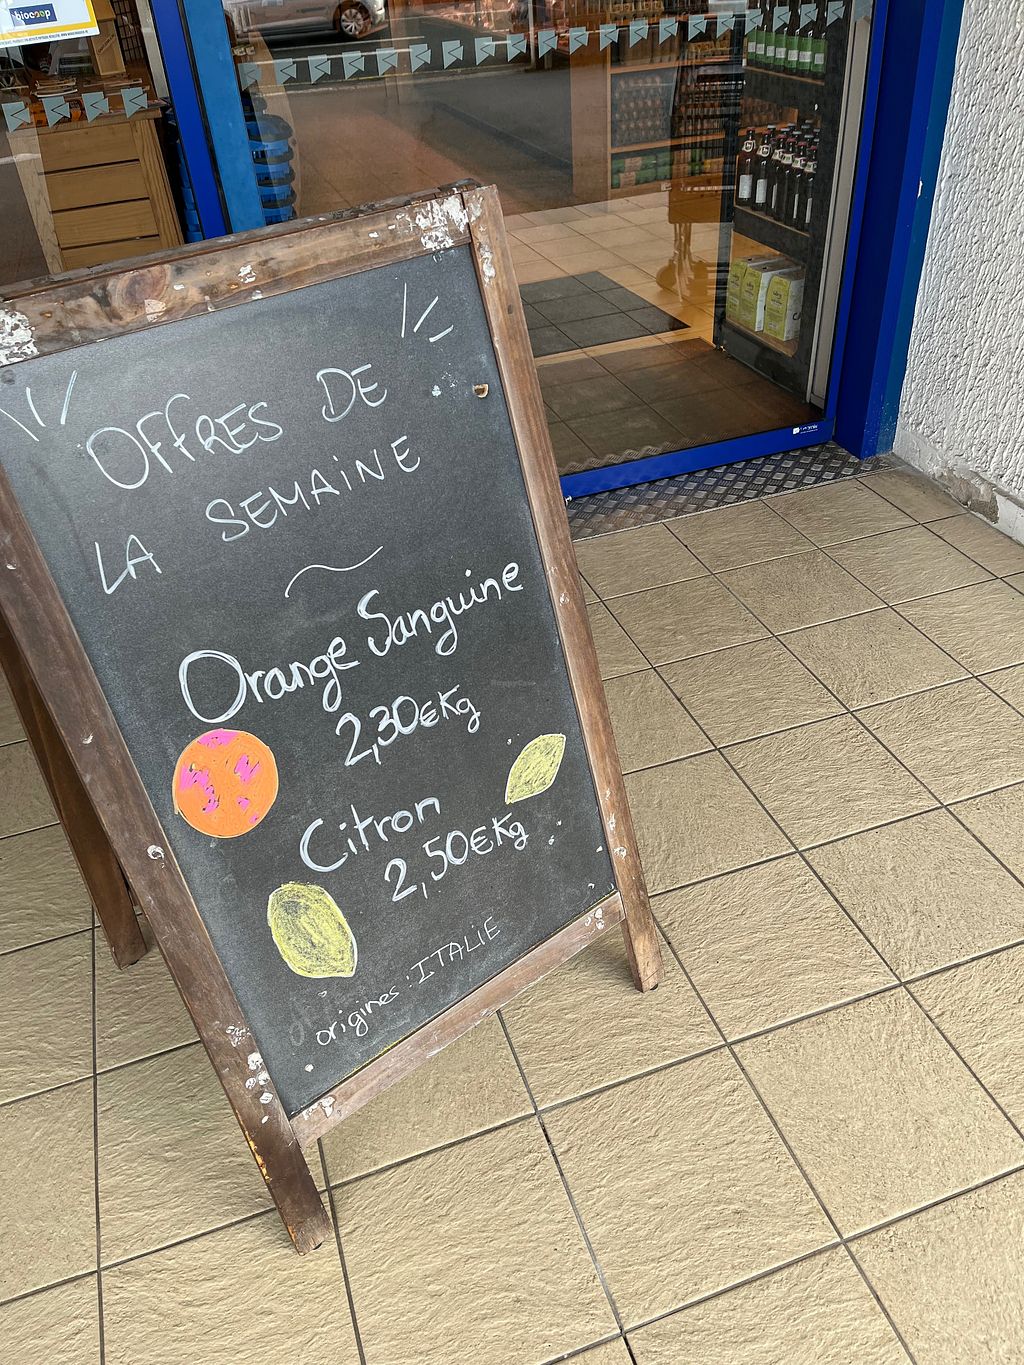 biocoop
OFFRES DE
LA SEMAINE
Orange Sanguine
2,30€Kg
Citron
2,50€Kg
origines : ITALIE